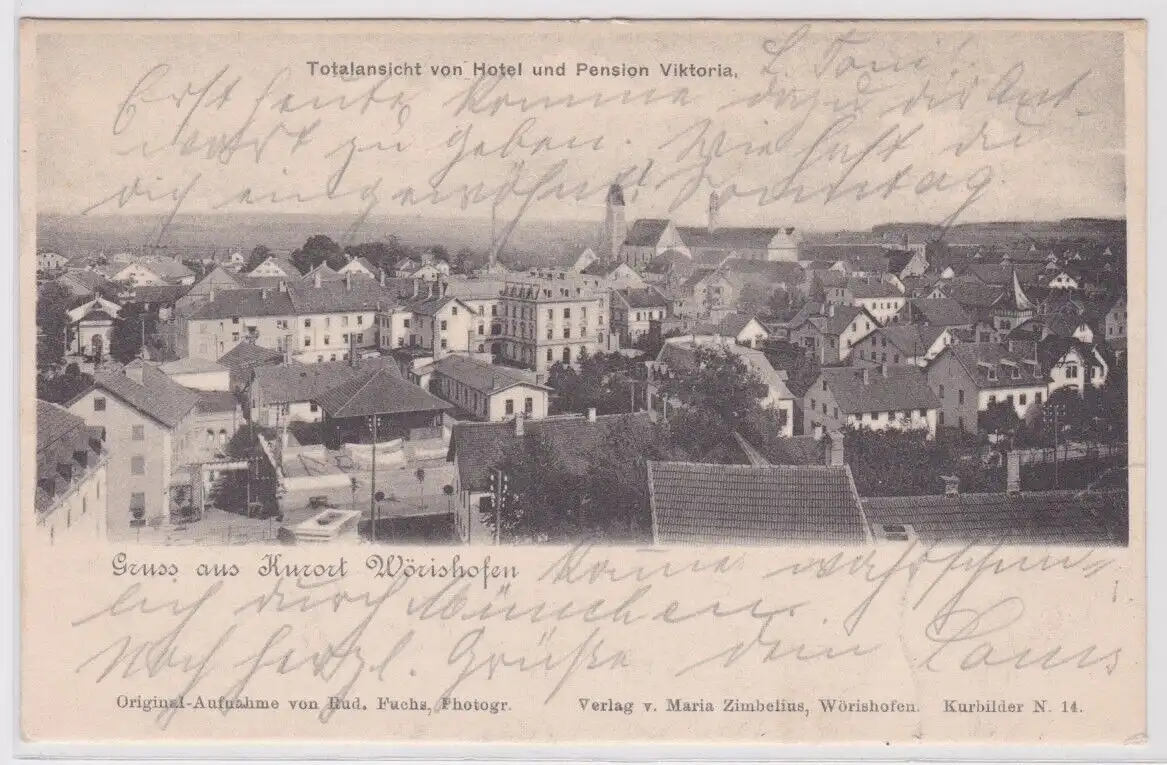 Totalansicht von Hotel und Pension Viktoria,
L. Toni!
Erst heute komme dazu dir Ant-
wort zu geben. Wie hast du
dich eingewöhnt? Sonntag
Gruss aus Kurort Wörishofen
komme wahrschein-
lich durch München.
Noch herzl. Grüße dein Louis
Original-Aufnahme von Rud. Fuchs, Photogr.
Verlag v. Maria Zimbelius, Wörishofen. Kurbilder N. 14.